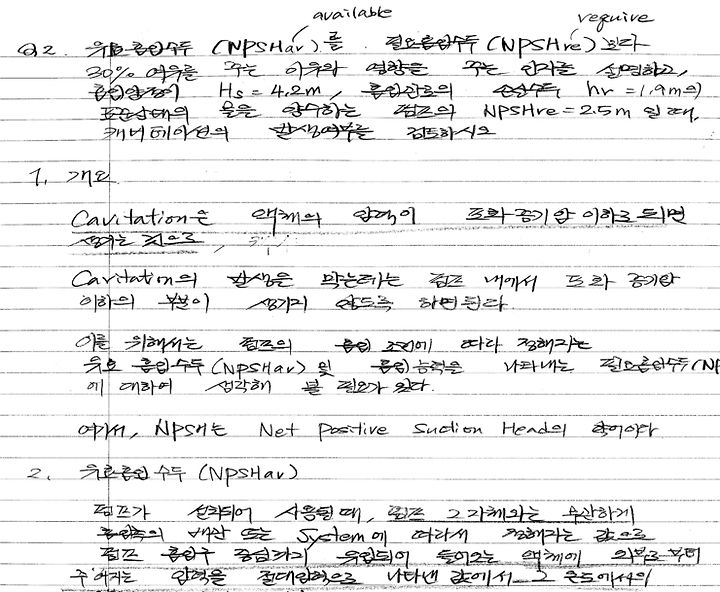 available
require
Q2. 유효흡입수두 (NPSHav)를 필요흡입수두 (NPSHre)보다
30% 여유를 주는 이유와 영향을 주는 인자를 설명하고,
흡입양정이 Hs = 4.2m, 흡입관로의 손실수두 hr = 1.9m의
표준상태의 물을 양수하는 펌프의 NPSHre = 2.5m 일 때,
캐비테이션의 발생여부를 검토하시오
1. 개요
Cavitation은 액체의 압력이 포화증기압 이하로 되면
생기는 것으로,
Cavitation의 발생을 막는데는 펌프 내에서 포화 증기압
이하의 부분이 생기지 않도록 하면 된다.
이를 위해서는 펌프의 흡입 조건에 따라 정해지는
유효 흡입수두 (NPSHav) 및 흡입능력을 나타내는 필요흡입수두(NP
에 대하여 생각해 볼 필요가 있다.
여기서, NPSH는 Net Positive Suction Head의 약어이다
2. 유효흡입수두 (NPSHav)
펌프가 설치되어 사용될 때, 펌프 그 자체와는 무관하게
흡입측의 배관 또는 System에 따라서 정해지는 값으로
펌프 흡입구 중심까지 유입되어 들어오는 액체에 외부로부터
주어지는 압력을 절대압력으로 나타낸 값에서 그 온도에서의